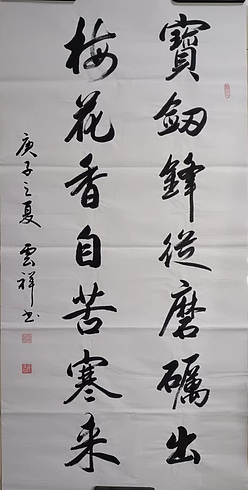 寶劔鋒從磨礪出
梅花香自苦寒来
庚子之夏 雲祥书